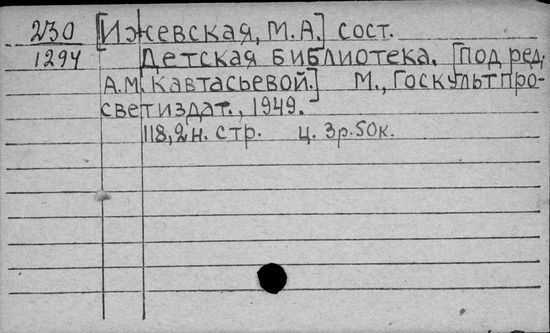 230 [Ижевская, М.А.] сост.
1294 Детская библиотека. [Под ред.
А.М. Кавтасьевой.] М., Госкультпро-
светиздат., 1949.
118,2н. стр. ц. 3р.50к.